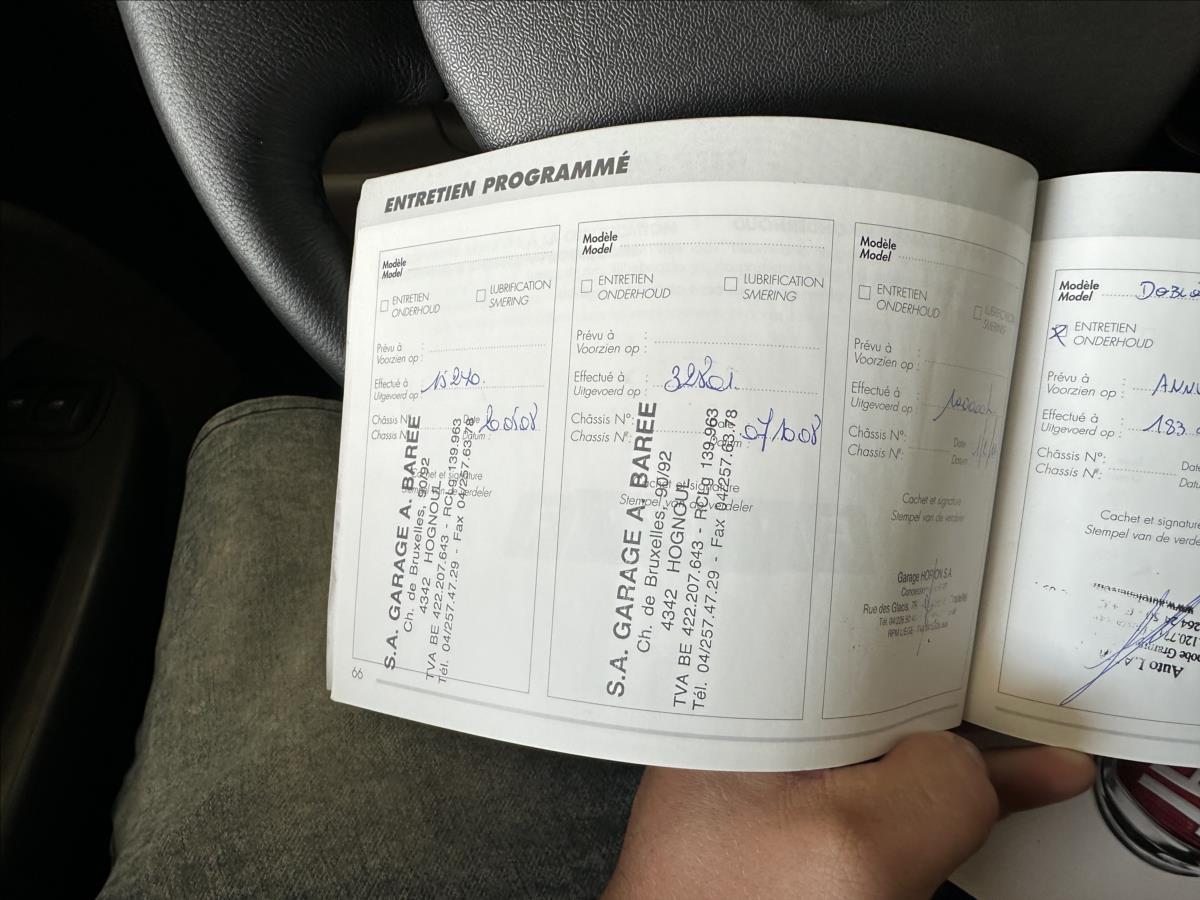 ENTRETIEN PROGRAMMÉ
Modèle
Model
ENTRETIEN
ONDERHOUD
LUBRIFICATION
SMERING
Prévu à
Voorzien op :
Effectué à
Uitgevoerd op :
15240.
Châssis N°
Chassis N°
Date
Datum :
200508
Cachet et signature
Stempel van de verdeler
S.A. GARAGE A. BARÉE
Ch. de Bruxelles, 90/92
4342 HOGNOUL
TVA BE 422.207.643 - RCLg 139.963
Tél. 04/257.47.29 - Fax 04/257.63.78
66
Modèle
Model
ENTRETIEN
ONDERHOUD
LUBRIFICATION
SMERING
Prévu à :
Voorzien op :
Effectué à :
Uitgevoerd op :
32801.
Châssis N°:
Chassis N°:
Datum :
071008
Cachet et signature
Stempel van de verdeler
S.A. GARAGE A. BARÉE
Ch. de Bruxelles, 90/92
4342 HOGNOUL
TVA BE 422.207.643 - RCLg 139.963
Tél. 04/257.47.29 - Fax 04/257.63.78
Modèle
Model
ENTRETIEN
ONDERHOUD
LUBRIFICATION
SMERING
Prévu à :
Voorzien op :
Effectué à :
Uitgevoerd op :
Châssis N°:
Chassis N°:
Date
Datum
Cachet et signature
Stempel van de verdeler
Garage HORION S.A.
Rue des Glacis,
RPM LIEGE
Modèle
Model
DOBLO
ENTRETIEN
ONDERHOUD
Prévu à :
Voorzien op :
Effectué à :
Uitgevoerd op :
183.
Châssis N°:
Chassis N°:
Date
Datu
Cachet et signature
Stempel van de verde
Auto